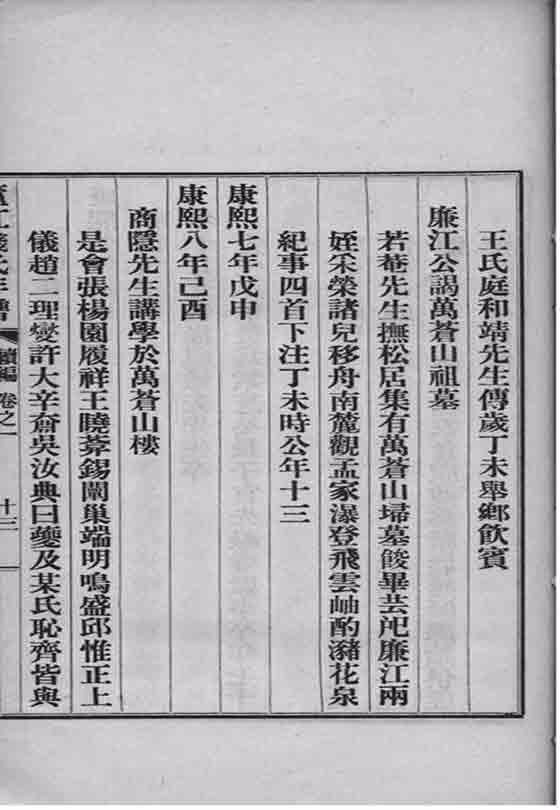 王氏庭和靖先生傳歲丁未舉鄉飲賓
廉江公謁萬蒼山祖墓
若菴先生撫松居集有萬蒼山埽墓餕畢芸阤廉江兩
姪采榮諸兒移舟南麓觀孟家瀑登飛雲岫酌瀦花泉
紀事四首下注丁未時公年十三
康熙七年戊申
康熙八年己酉
商隱先生講學於萬蒼山樓
是會張楊園履祥王曉葊錫闡巢端明鳴盛邱惟正上
儀趙二理燮許大辛齋吳汝典曰夔及某氏恥齊皆與
續編 卷之一 十三